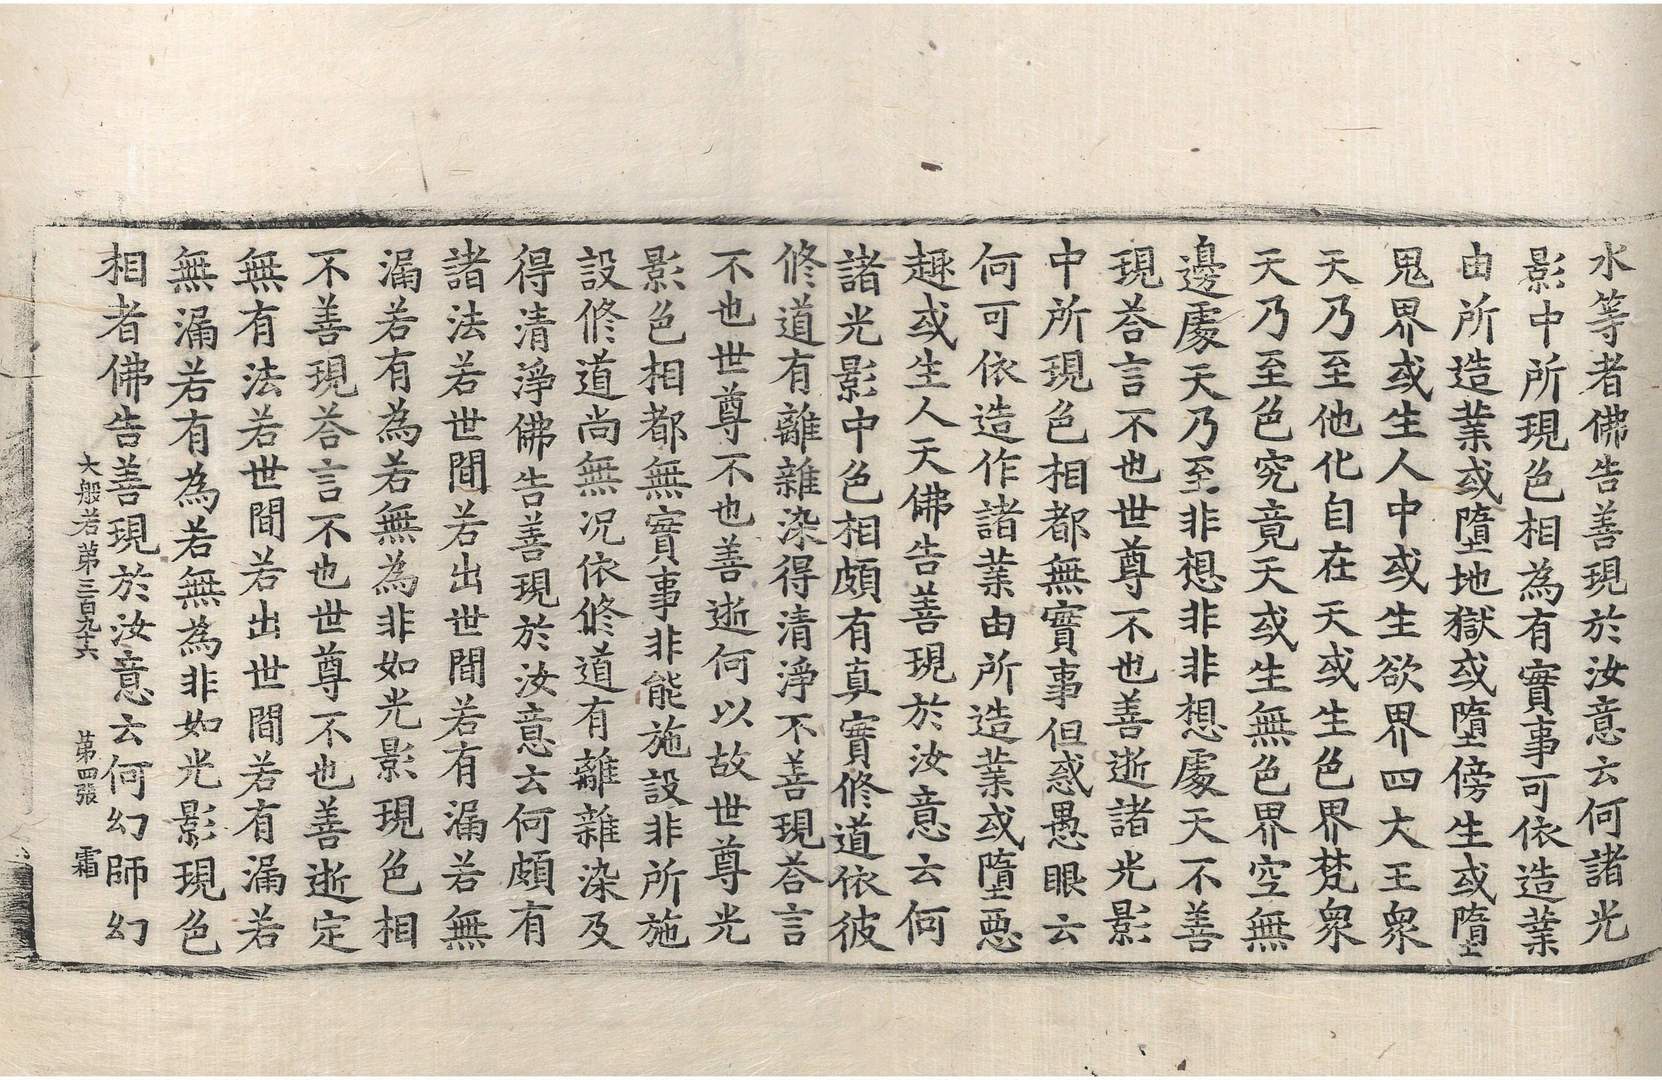 水等者佛告善現於汝意云何諸光
影中所現色相為有實事可依造業
由所造業或墮地獄或墮傍生或墮
鬼界或生人中或生欲界四大王衆
天乃至他化自在天或生色界梵衆
天乃至色究竟天或生無色界空無
邊處天乃至非想非非想處天不善
現荅言不也世尊不也善逝諸光影
中所現色相都無實事但惑愚眼云
何可依造作諸業由所造業或墮惡
趣或生人天佛告善現於汝意云何
諸光影中色相頗有真實修道依彼
修道有離雜染得清淨不善現荅言
不也世尊不也善逝何以故世尊光
影色相都無實事非能施設非所施
設修道尚無况依修道有離雜染及
得清淨佛告善現於汝意云何頗有
諸法若世間若出世間若有漏若無
漏若有為若無為非如光影現色相
不善現荅言不也世尊不也善逝定
無有法若世間若出世間若有漏若
無漏若有為若無為非如光影現色
相者佛告善現於汝意云何幻師幻
大般若第三百九十六 第四張 霜